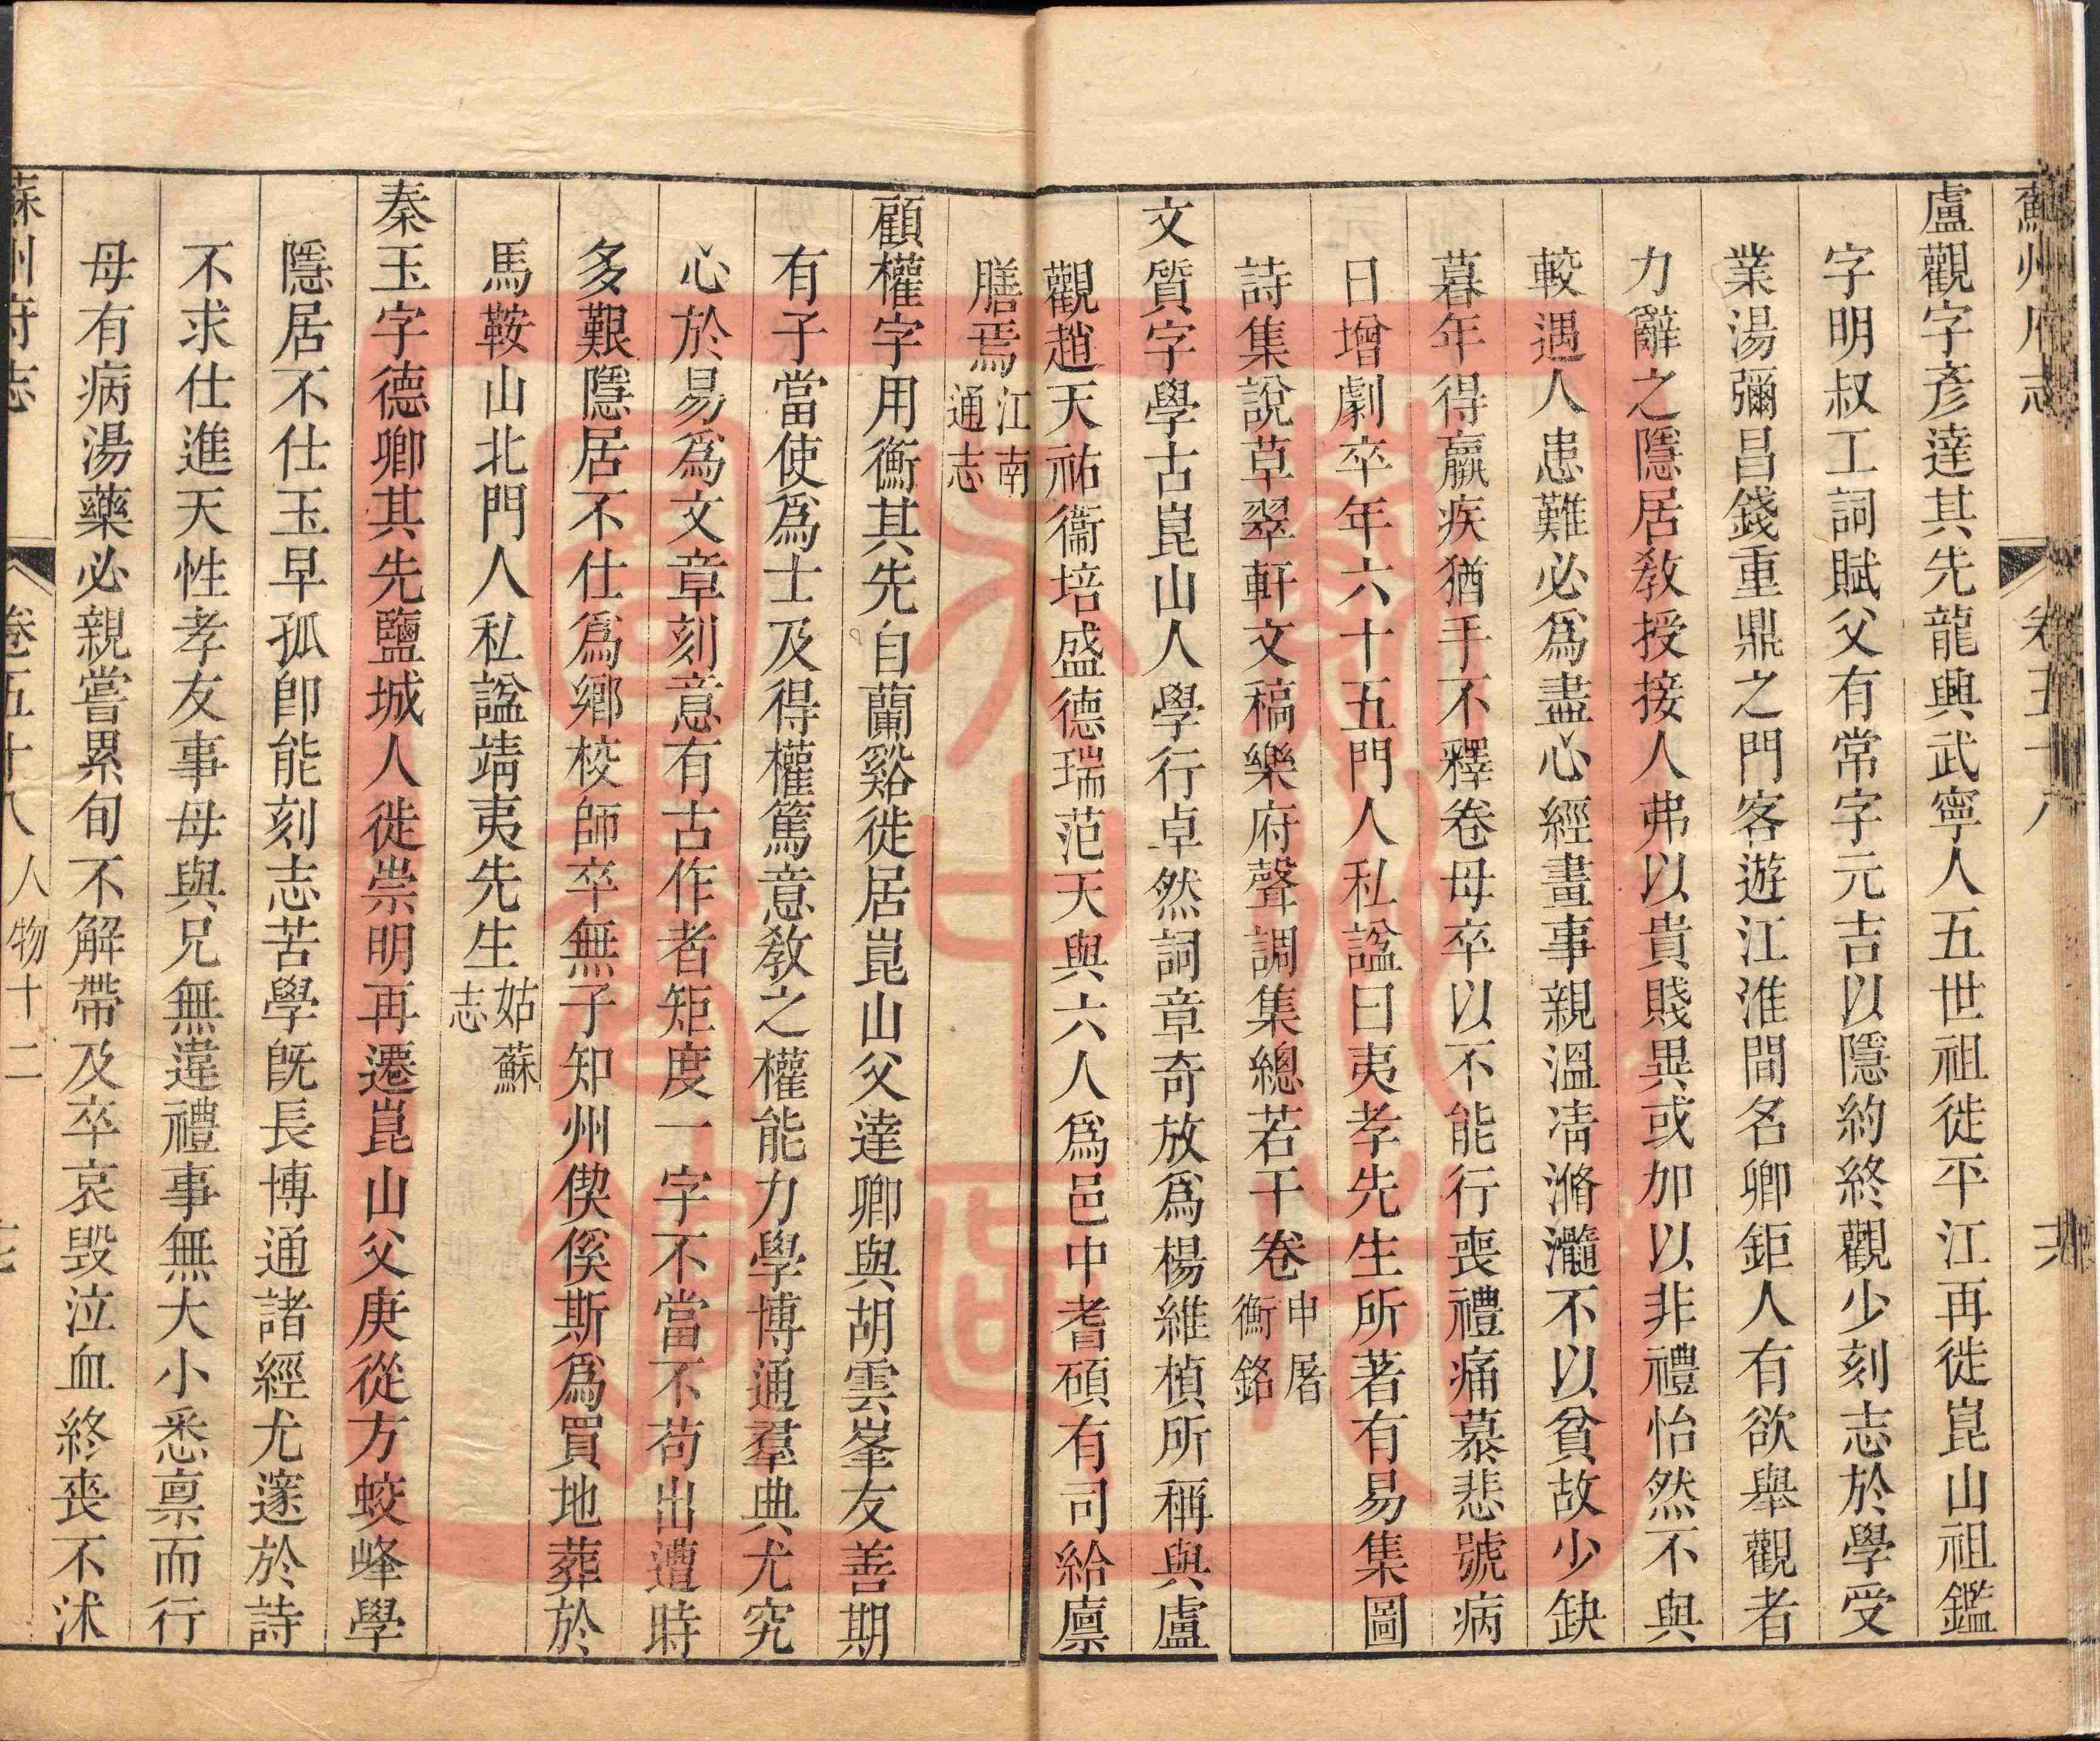 蘇州府志 卷五十八
盧觀字彥達其先龍興武寧人五世祖徙平江再徙崑山祖鑑
字明叔工詞賦父有常字元吉以隱約終觀少刻志於學受
業湯彌昌錢重鼎之門客遊江淮間名卿鉅人有欲舉觀者
力辭之隱居教授接人弗以貴賤異或加以非禮怡然不與
較遇人患難必為盡心經畫事親溫凊滫瀡不以貧故少缺
暮年得羸疾猶手不釋卷母卒以不能行喪禮痛慕悲號病
日增劇卒年六十五門人私諡曰夷孝先生所著有易集圖
詩集說草翠軒文稿樂府聲調集總若干卷申屠衡銘
文質字學古崑山人學行卓然詞章奇放為楊維楨所稱與盧
觀趙天祐衞培盛德瑞范天與六人為邑中耆碩有司給廩
膳焉江南通志
顧權字用衡其先自蘭谿徙居崑山父達卿與胡雲峯友善期
有子當使為士及得權篤意教之權能力學博通羣典尤究
心於易為文章刻意有古作者矩度一字不當不苟出遭時
多艱隱居不仕為鄉校師卒無子知州偰傒斯為買地葬於
馬鞍山北門人私諡靖夷先生姑蘇志
秦玉字德卿其先鹽城人徙崇明再遷崑山父庚從方蛟峰學
隱居不仕玉早孤卽能刻志苦學旣長博通諸經尤邃於詩
不求仕進天性孝友事母與兄無違禮事無大小悉禀而行
母有病湯藥必親嘗累旬不解帶及卒哀毀泣血終喪不沭
蘇州府志 卷五十八 人物十二